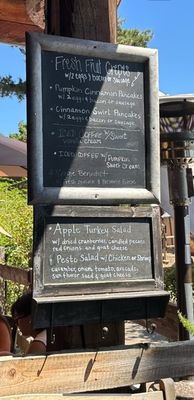 Fresh Fruit Crepes
w/2 eggs & bacon or sausage
* Pumpkin Cinnamon Pancakes
w/2 eggs & bacon or sausage
* Cinnamon Swirl Pancakes
w/2 eggs & bacon or sausage
* ICED COFFEE w/Sweet
cream
* ICED COFFEE w/Pumpkin
Sweet cream
Benedict
* Apple Turkey Salad
w/ dried cranberries, candied pecans,
red onions, and goat cheese
* Pesto Salad w/ Chicken or Shrimp
cucumber, onion, tomato, avocado,
sunflower seed & goat cheese